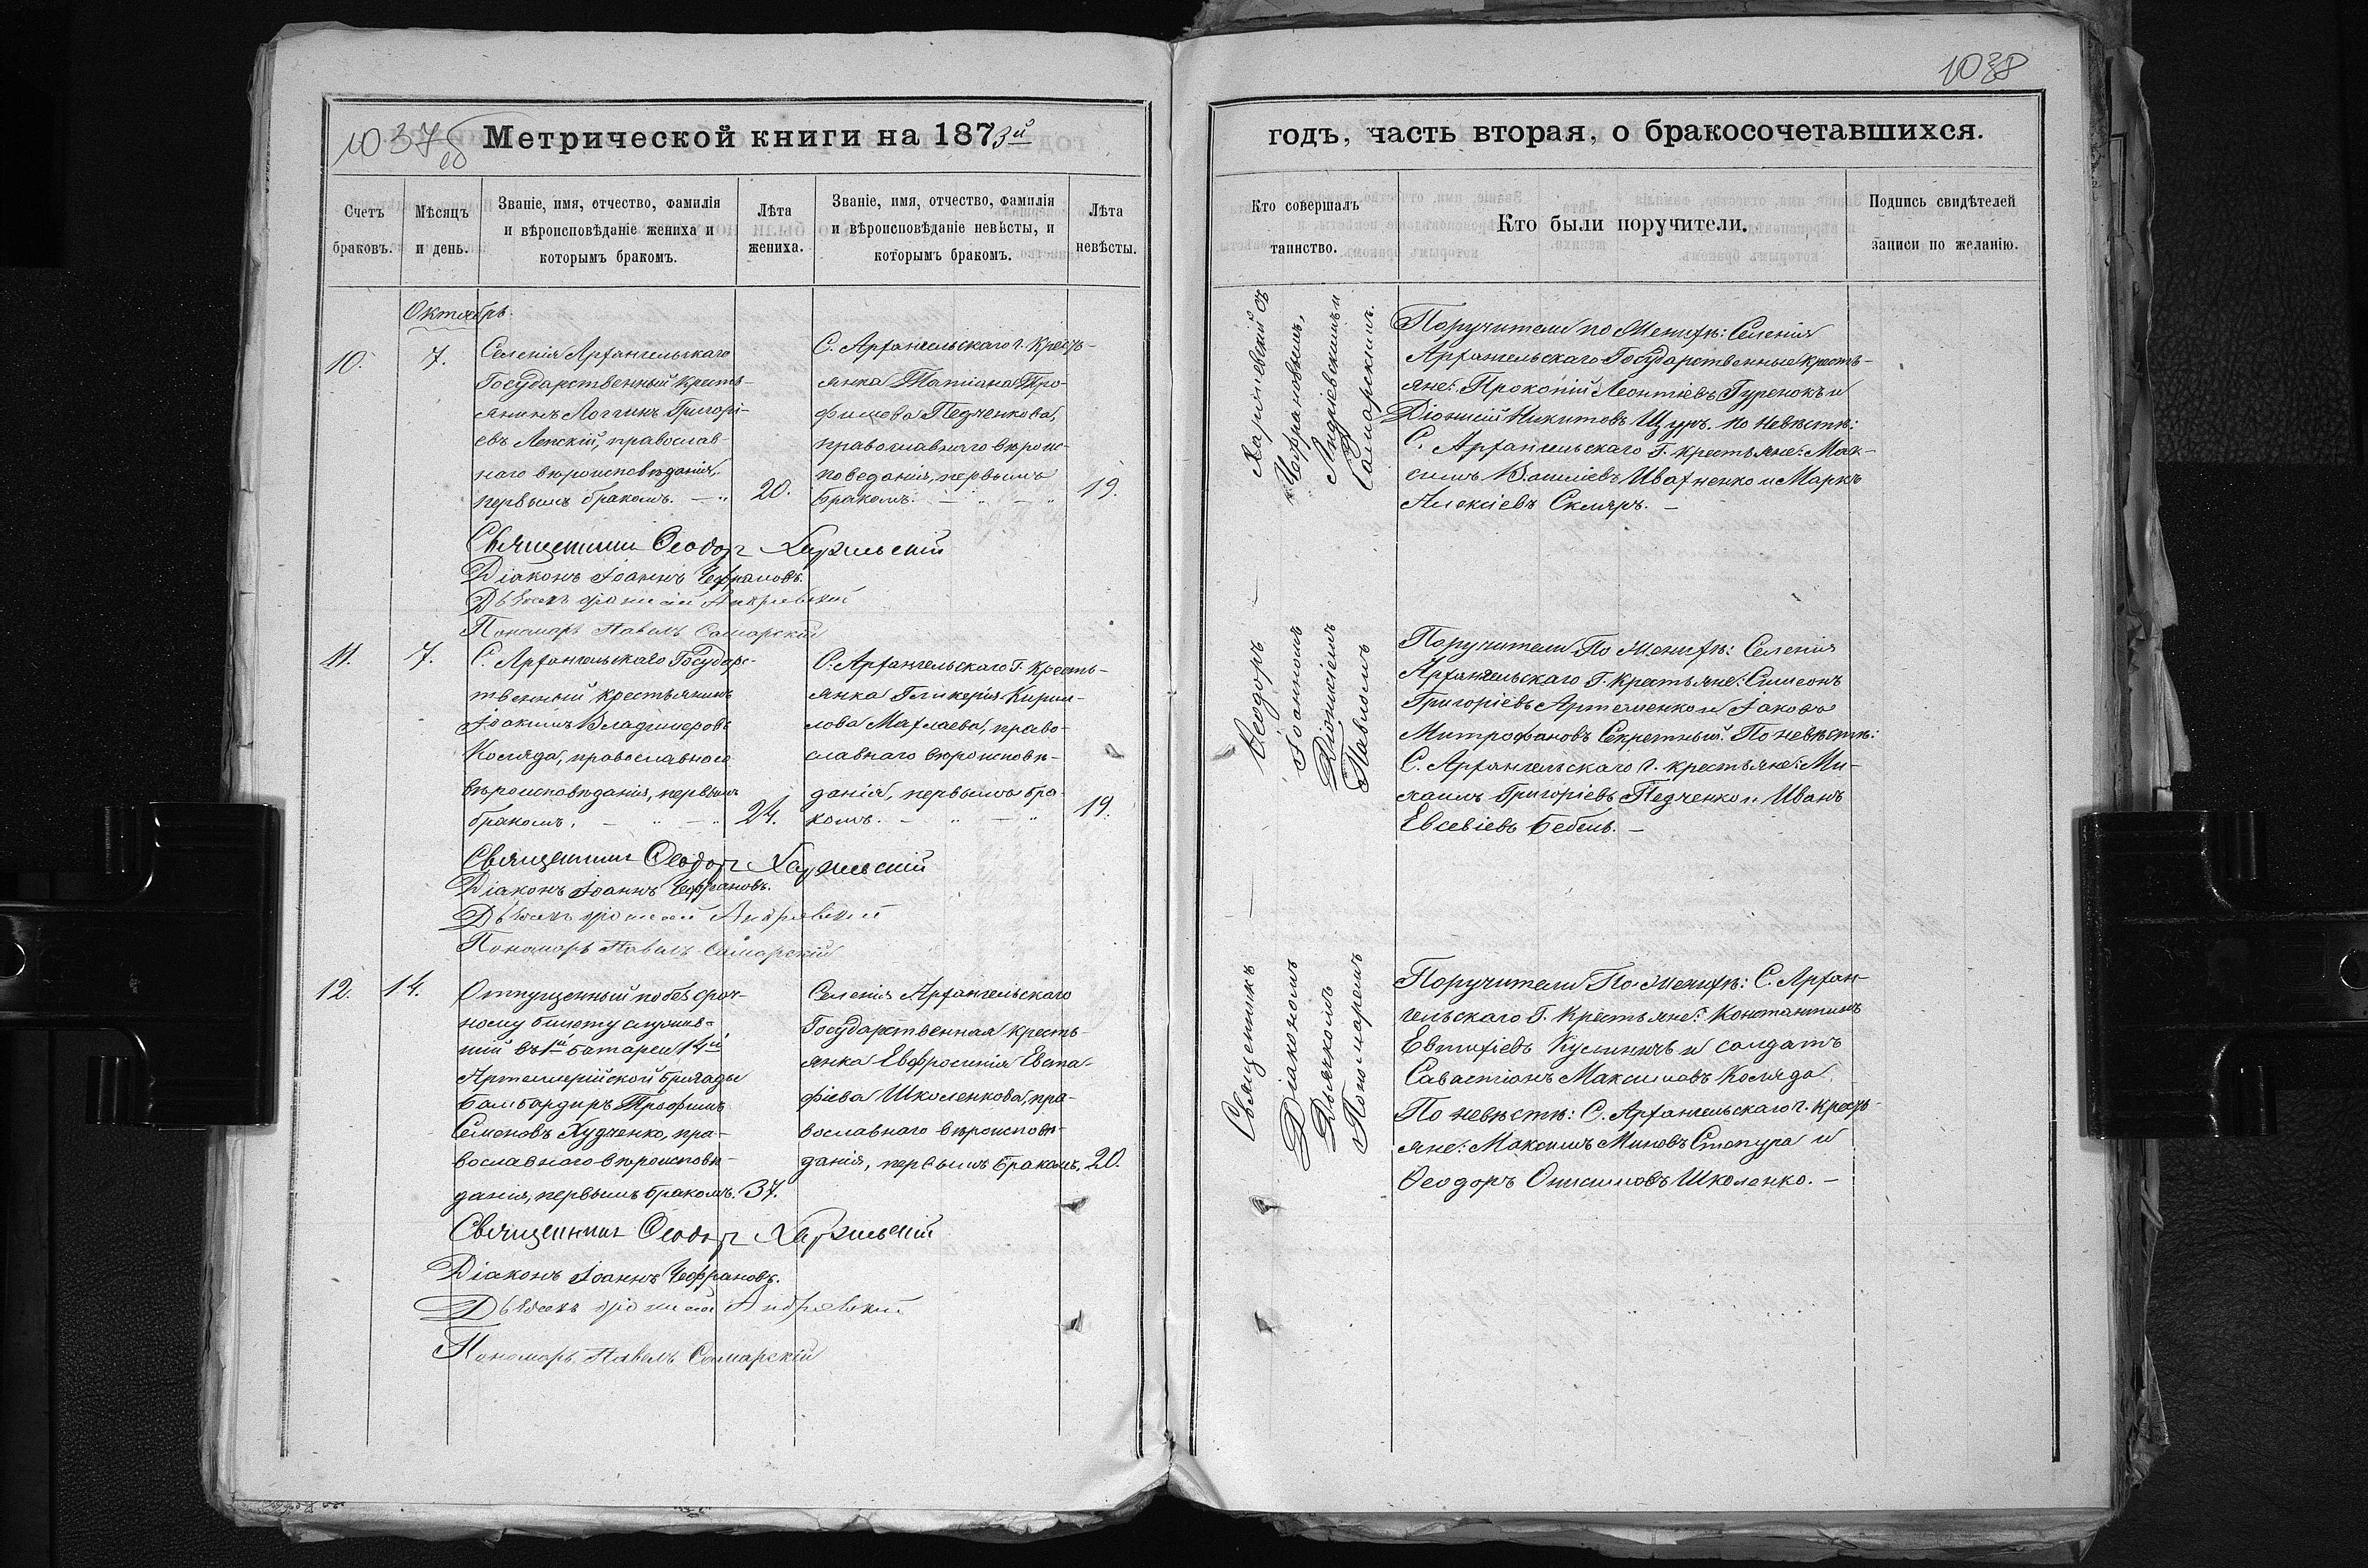 1037об
Метрической книги на 1873й
Счетъ браковъ.
Мѣсяцъ и день.
Званіе, имя, отчество, фамилія
и вѣроисповѣданіе жениха и
которымъ бракомъ.
Лѣта
жениха.
Званіе, имя, отчество, фамилія
и вѣроисповѣданіе невѣсты, и
которымъ бракомъ.
Лѣта
невѣсты.
Октябрь.
10.
7.
Селенія Архангельскаго
Государственный кресть-
янинъ Логгинъ Григорі-
евъ Лепскій, православ-
наго вѣроисповѣданія,
первымъ бракомъ. — „
20.
С. Архангельскаго г. кресть-
янка Татіана Тро-
фимова Педченкова,
православнаго вѣроис-
поведанія, первымъ
бракомъ. — „ — „
19.
Священникъ Ѳеодоръ Харжевскій
Діаконъ Іоаннъ Чефрановъ.
Дьячекъ Діонисій Андріевскій
Пономарь Павелъ Самарскій
11.
7.
С. Архангельскаго Государс-
твенный крестьянинъ
Іоакимъ Владимеровъ
Коляда, православного
вѣроисповѣданія, первымъ
бракомъ. — „ — „
24.
С. Архангельскаго Г. Кресть-
янка Гликерія Кирил-
лова Махлаева, право-
славнаго вѣроисповѣ-
данія, первымъ бра-
комъ. — „ — „
19.
Священникъ Ѳеодоръ Харжевскій
Діаконъ Іоаннъ Чефрановъ.
Дьячекъ Діонисій Андріевскій
Пономарь Павелъ Самарскій
12.
14.
Отпущенный по безсроч-
ному билету служив-
шій въ 1й батареи 14й
Артеллерійской бригады
Бамбардиръ Трофимъ
Семеновъ Худченко, пра-
вославнаго вѣроисповѣ-
данія, первымъ бракомъ.
37.
Селенія Архангельскаго
Государственная кресть-
янка Евфросинія Евста-
фіева Школенкова, пра-
вославнаго вѣроисповѣ-
данія, первымъ бракомъ.
20.
Священникъ Ѳеодоръ Харжевскій
Діаконъ Іоаннъ Чефрановъ.
Дьячекъ Діонисій Андріевскій
Пономарь Павелъ Самарскій
1038
годъ, часть вторая, о бракосочетавшихся.
Кто совершалъ
таинство.
Кто были поручители.
Подпись свидѣтелей
записи по желанію.
Священникъ — Ѳеодоръ — Харжевскій съ
Діакономъ Іоанномъ Чефрановымъ,
Дьячкомъ Діонисіемъ Андріевскимъ и
Пономаремъ Павломъ Самарскимъ.
Поручители по Женихѣ: Селенія
Архангельскаго Государственные кресть-
яне: Прокопій Леонтіевъ Гуренокъ и
Діонисій Никитовъ Щуръ. по Невѣстѣ:
С. Архангельскаго Г. крестьяне: Мак-
симъ Василіевъ Ивахненко и Маркъ
Алексіевъ Скляръ. —
Поручители По Женихѣ: Селенія
Архангельскаго Г. Крестьяне: Симеонъ
Григоріевъ Артеменко и Іаковъ
Митрофановъ Секретный. По невѣстѣ:
С. Архангельскаго г. крестьяне: Ми-
хаилъ Григоріевъ Педченко и Иванъ
Евсевіевъ Бебель. —
Поручители По Женихѣ: С. Архан-
гельскаго Г. Крестьяне: Константинъ
Евтихіевъ Кулиничъ и солдатъ
Савастіанъ Максимовъ Коляда.
По невѣстѣ: С. Архангельскаго г. кресть-
яне: Максимъ Миновъ Стопура и
Ѳеодоръ Онисимовъ Школенко. —